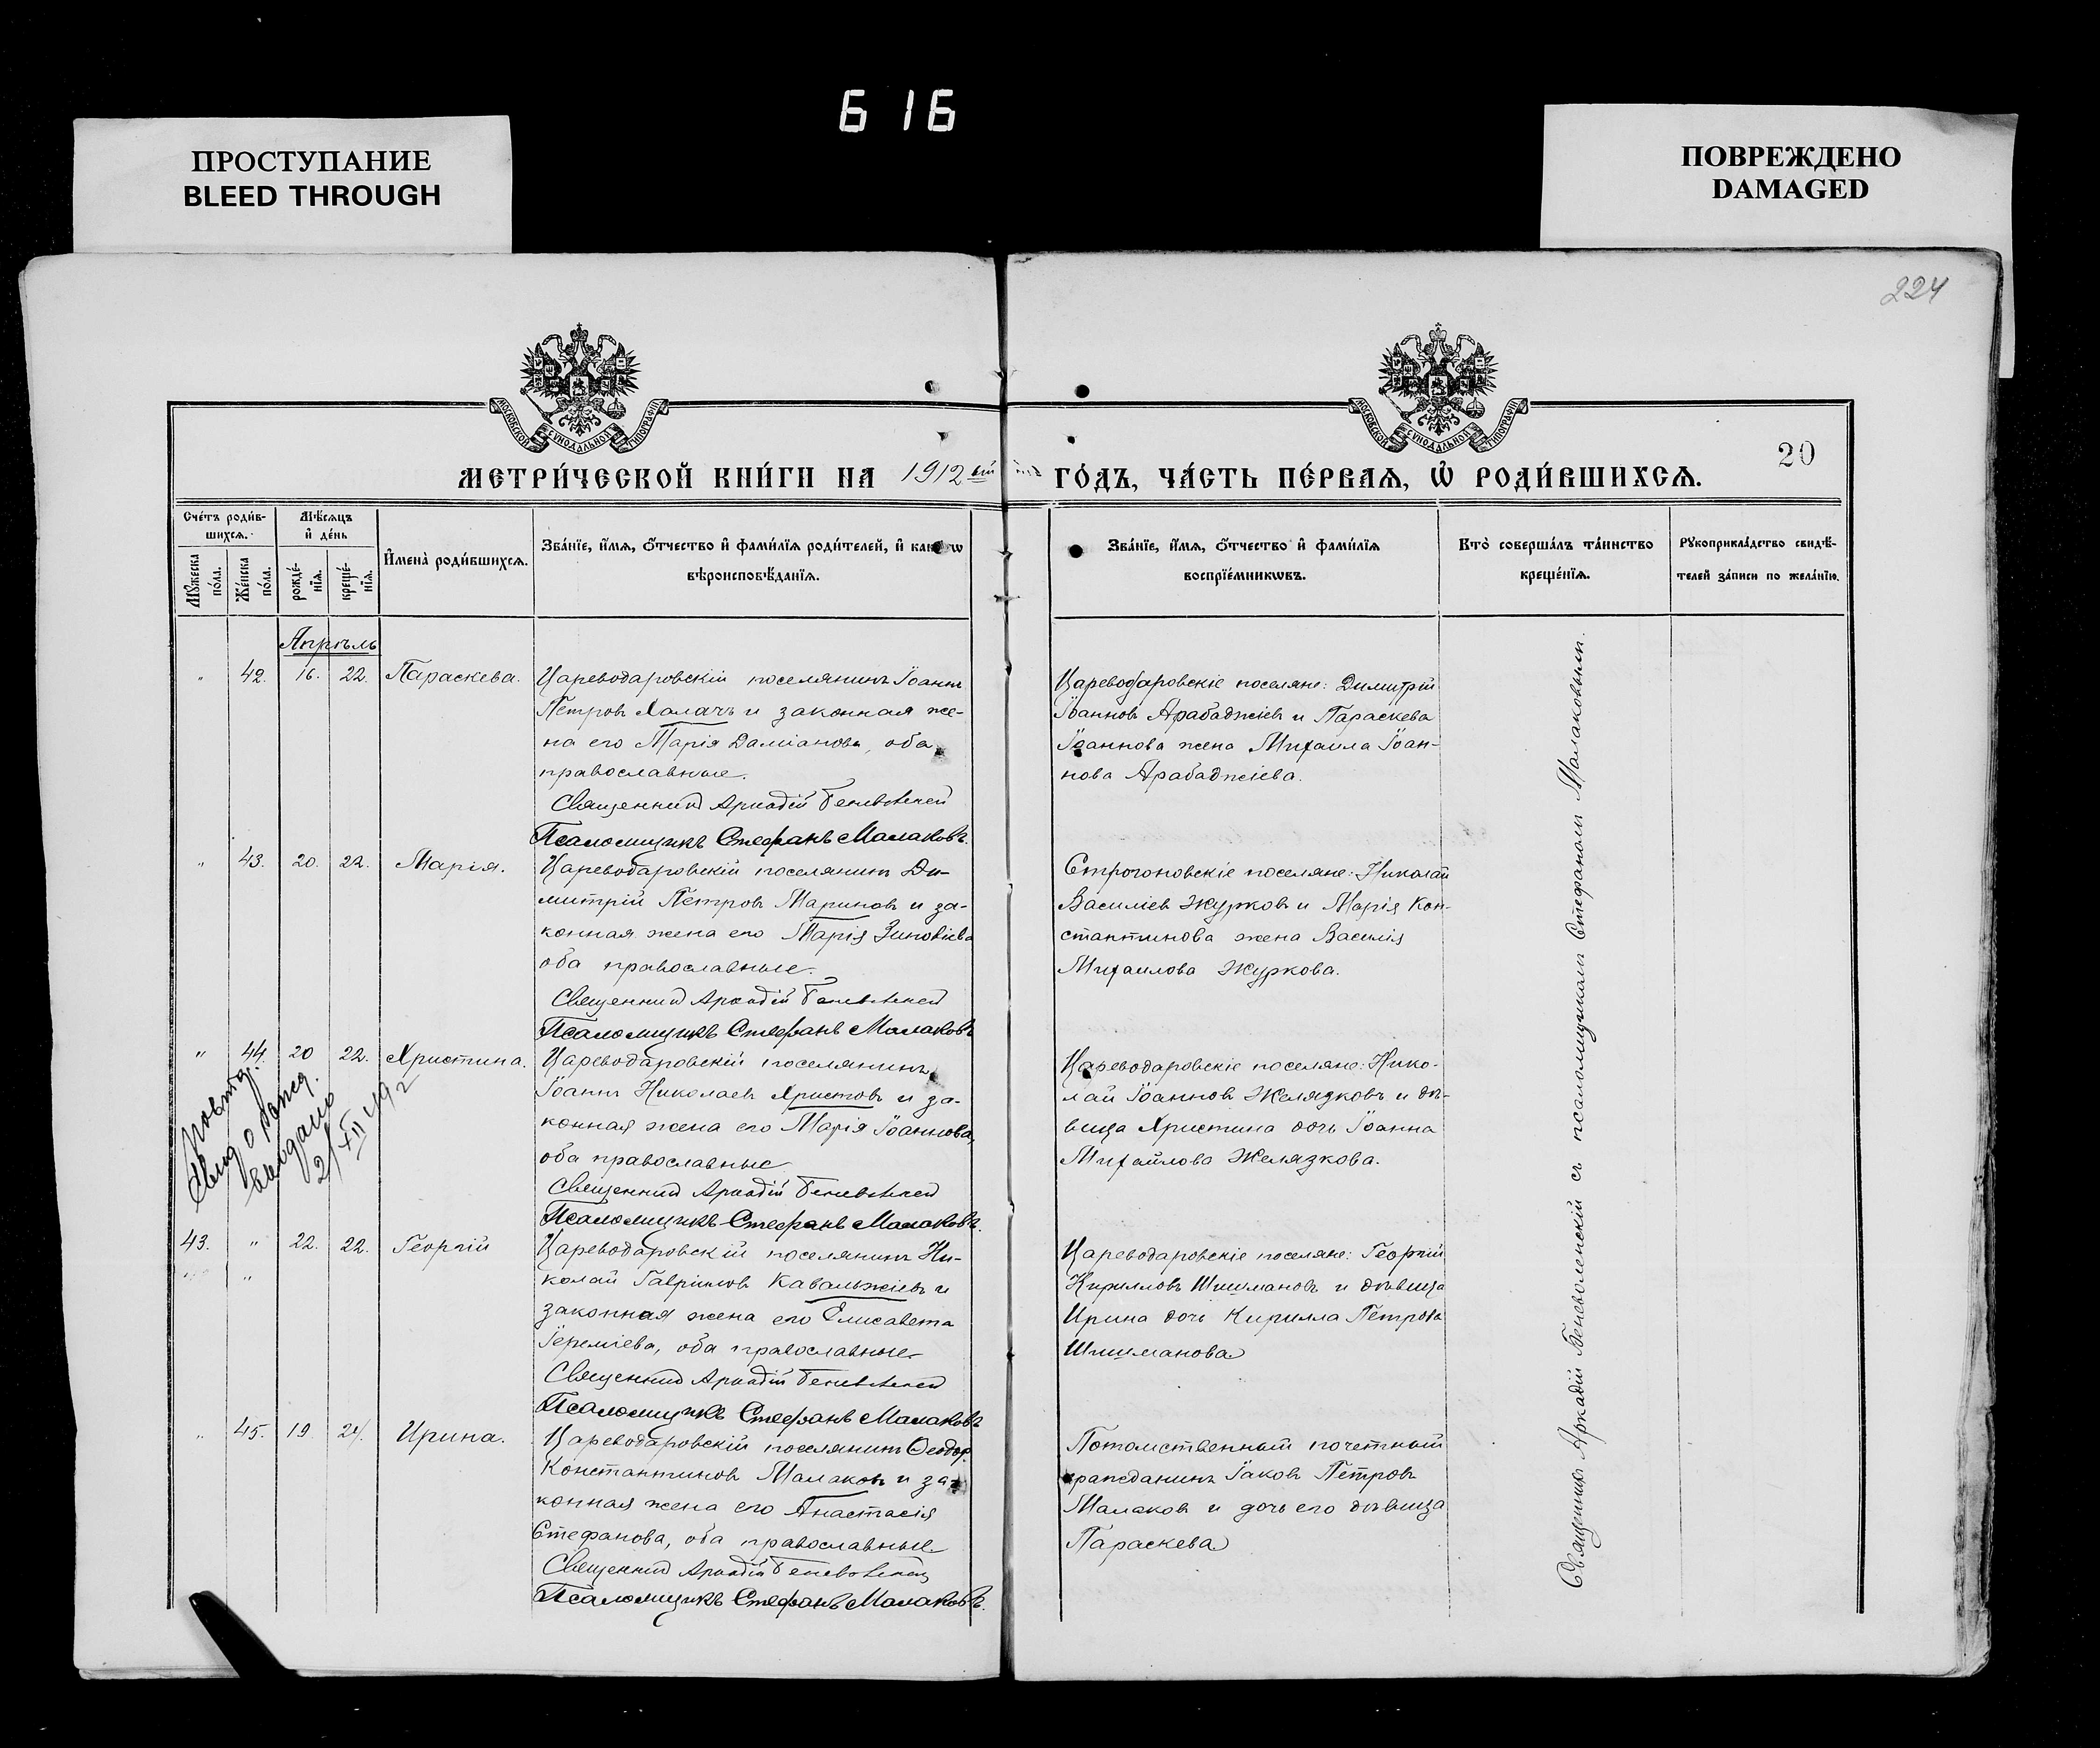 616
ПРОСТУПАНИЕ
BLEED THROUGH
ПОВРЕЖДЕНО
DAMAGED
224
МОСКОВСКОЙ СѴНОДАЛЬНОЙ ТИПОГРАФІИ
МОСКОВСКОЙ СѴНОДАЛЬНОЙ ТИПОГРАФІИ
20
МЕТРИ́ЧЕСКОЙ КНИ́ГИ НА 1912 ый
ГО́ДЪ, ЧА́СТЬ ПЕ́РВАѦ, Ѽ РОДИ́ВШИХСѦ.
Сче́тъ роди́в-
шихсѧ.
Мꙋ́жеска по́ла.
Же́нска по́ла.
Мѣ́сѧцъ
и҆ де́нь
рожде́-
нїѧ.
креще́-
нїѧ.
И҆мена̀ роди́вшихсѧ.
Зва́нїе, и҆́мѧ, ѻ҆́тчество и҆ фами́лїѧ роди́телей, и҆ како́гѡ
вѣроисповѣ́данїѧ.
Зва́нїе, и҆́мѧ, ѻ҆́тчество и҆ фами́лїѧ
воспрїе́мникѡвъ.
Кто̀ соверша́лъ та́инство
креще́нїѧ.
Рꙋкоприкла́дство свидѣ́-
телей за́писи по жела́нїю.
Апрѣль
" 42. 16. 22. Параскева.
Цареводаровскій поселянинъ Іоаннъ
Петровъ Халачъ и законная же-
на его Марія Даміанова, оба
православные.
Священникъ Аркадій Беневоленскій
Псаломщикъ Стефанъ Малаковъ.
Цареводаровскіе поселяне: Димитрій
Іоанновъ Арабаджіевъ и Параскева
Іоаннова жена Михаила Іоан-
нова Арабаджіева.
" 43. 20. 22. Марія.
Цареводаровскій поселянинъ Ди-
митрій Петровъ Мариновъ и за-
конная жена его Марія Зиновіева
оба православные.
Священникъ Аркадій Беневоленскій
Псаломщикъ Стефанъ Малаковъ
Строгоновскіе поселяне: Николай
Василіевъ Журковъ и Марія Кон-
стантинова жена Василія
Михаилова Журкова.
" 44. 20 22. Христина.
Цареводаровскій поселянинъ
Іоаннъ Николаевъ Христовъ и за-
конная жена его Марія Іоаннова,
оба православные
Священникъ Аркадій Беневоленскій
Псаломщикъ Стефанъ Малаковъ.
Цареводаровскіе поселяне: Нико-
лай Іоанновъ Желязковъ и дѣ-
вица Христина дочь Іоанна
Михайлова Желязкова.
свид о
выдано
43. " 22. 22. Георгій
Цареводаровскій поселянинъ Ни-
колай Гавриловъ Кавальжіевъ и
законная жена его Елисавета
Іереміева, оба православные.
Священникъ Аркадій Беневоленскій
Псаломщикъ Стефанъ Малаковъ
Цареводаровскіе поселяне: Георгій
Кирилловъ Шишмановъ и дѣвица
Ирина дочь Кирилла Петрова
Шишманова
" 45. 19. 24. Ирина.
Цареводаровскій поселянинъ Ѳеодор.
Константиновъ Малаковъ и за-
конная жена его Анастасія
Стефанова, оба православные.
Священникъ Аркадій Беневоленскій
Псаломщикъ Стефанъ Малаковъ.
Потомственный почетный
гражданинъ Іаковъ Петровъ
Малаковъ и дочь его дѣвица
Параскева
Священникъ Аркадій Беневоленскій съ псаломщикомъ Стефаномъ Малаковымъ.